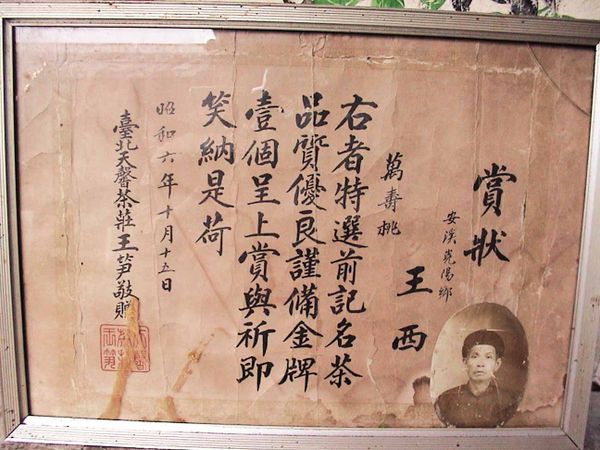 賞狀
安溪堯陽鄉
王西
萬壽桃
右者特選前記名茶
品質優良謹備金牌
壹個呈上賞與祈即
笑納是荷
昭和六年十月十五日
臺北天馨茶莊王笋敬贈